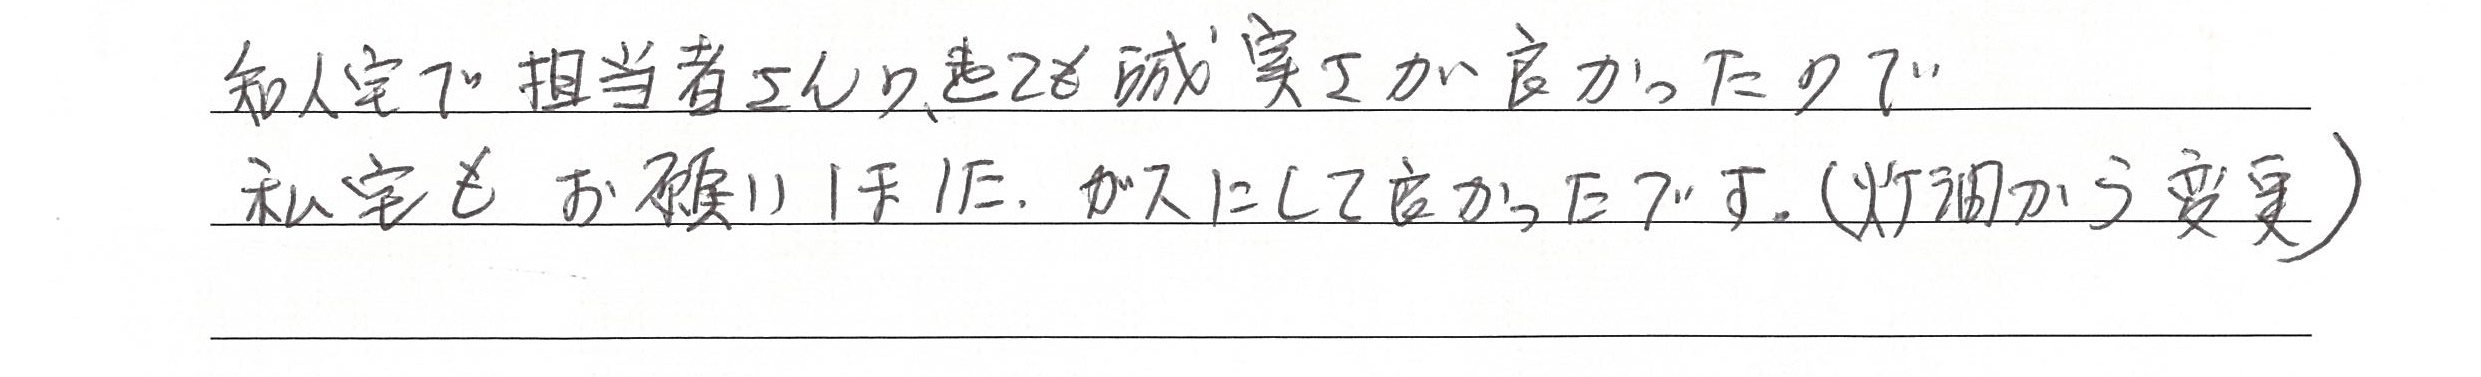 知人宅で担当者さんの、とても誠実さが良かったので
私宅もお願いしました。ガスにして良かったです。(灯油から変更)